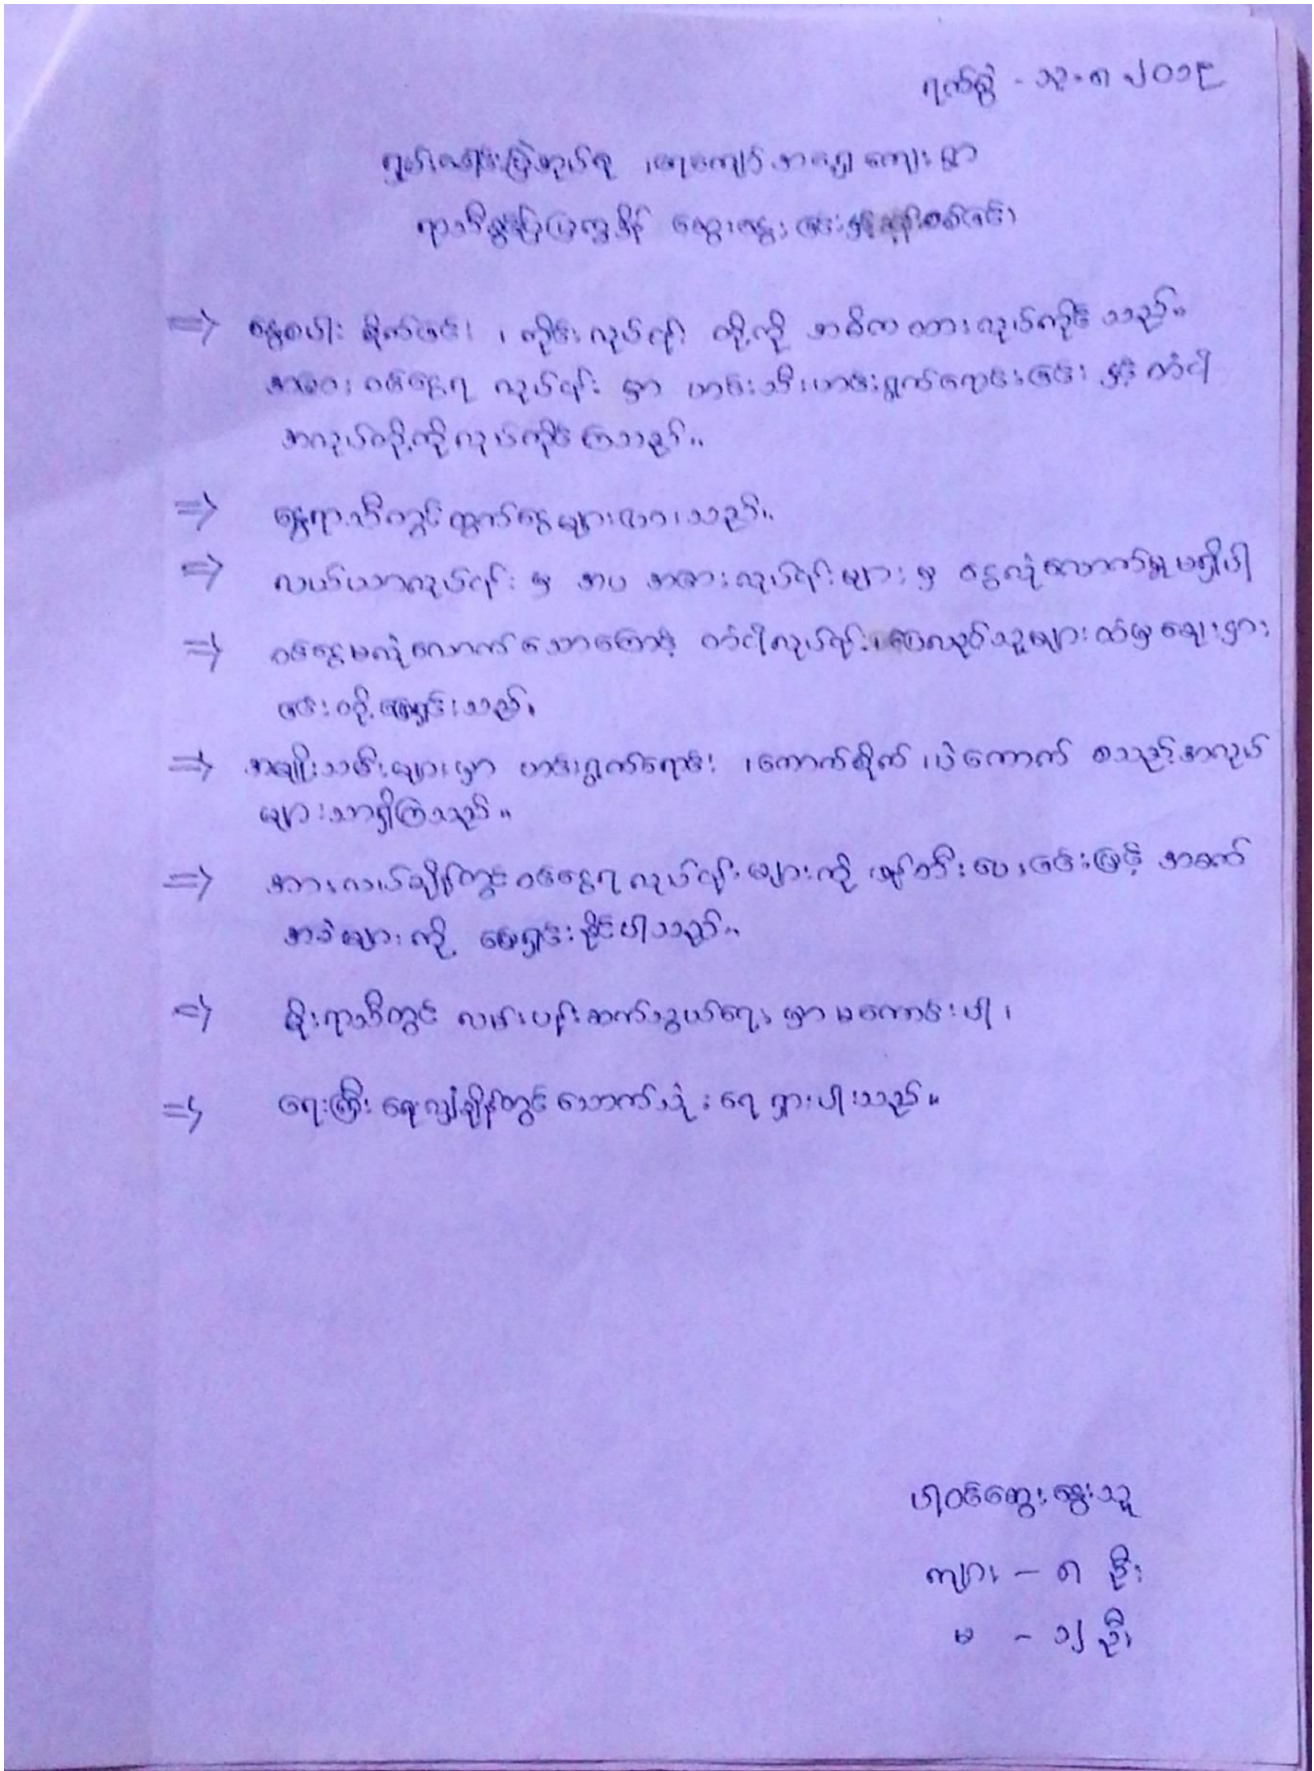 ရက်စွဲ - ၁၃-၈-၂၀၁၉
အရှေ့ကျေးရွာ
ရာသီခွင်ပြပြက္ခဒိန် ဆွေးနွေးခြင်း
⇒ နွေစပါး စိုက်ခြင်း၊ ကိုင်းလုပ်ငန်း တို့ကို အဓိကထားလုပ်ကိုင်သည်။
အခြားဝင်ငွေရ လုပ်ငန်း မှာ ဟင်းသီးဟင်းရွက်ရောင်းခြင်း နှင့် တံငါ
အလုပ်တို့ကိုလုပ်ကိုင်ကြသည်။
⇒ နွေရာသီတွင်ထွက်ငွေများလာသည်။
⇒ လယ်ယာလုပ်ငန်း မှ အပ အခြားလုပ်ငန်းများ မှ ငွေလုံလောက်မှုမရှိပါ
⇒ ဝင်ငွေမလုံလောက်သောကြောင့် တံငါလုပ်ငန်း၊ သူများထံမှချေးငှား
ခြင်းတို့ဖြေရှင်းသည်။
⇒ အမျိုးသမီးများမှာ ဟင်းရွက်ရောင်း၊ ကောက်စိုက်၊ ပဲကောက် စသည့်အလုပ်
များသာရှိကြသည်။
⇒ အားလပ်ချိန်တွင်ဝင်ငွေရလုပ်ငန်းများကို ဖန်တီးပေးခြင်းဖြင့် အခက်
အခဲများကို ဖြေရှင်းနိုင်ပါသည်။
⇒ မိုးရာသီတွင် လမ်းပန်းဆက်သွယ်ရေး မှာမကောင်းပါ၊
⇒ ရေကြီးရေလျှံချိန်တွင်သောက်သုံးရေရှားပါးသည်။
ပါဝင်ဆွေးနွေးသူ
ကျား - ၈ ဦး
မ - ၁၂ ဦး